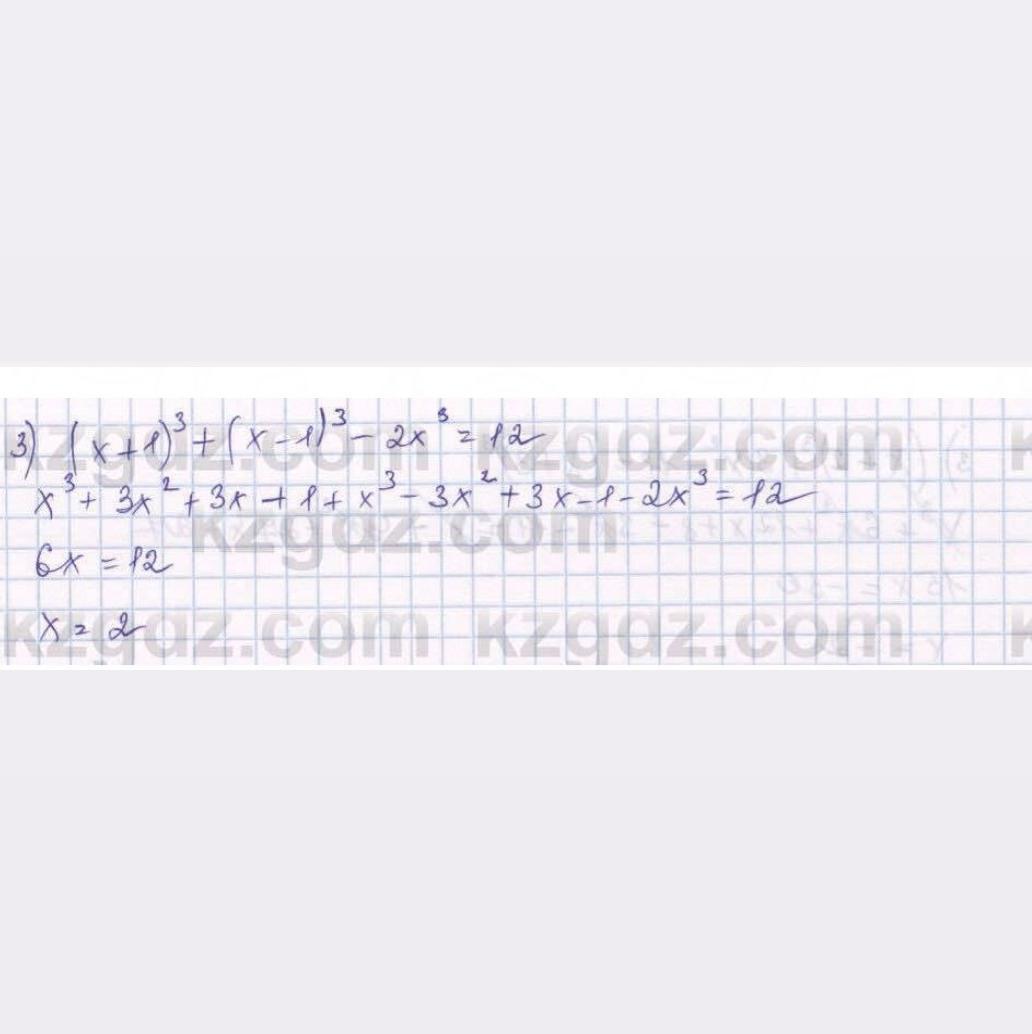 3) (x+1)³+(x-1)³-2x³=12
x³+3x²+3x+1+x³-3x²+3x-1-2x³=12
kzgdz.com kzgdz.com
kzgdz.com
6x=12
x=2
kzgdz.com kzgdz.com